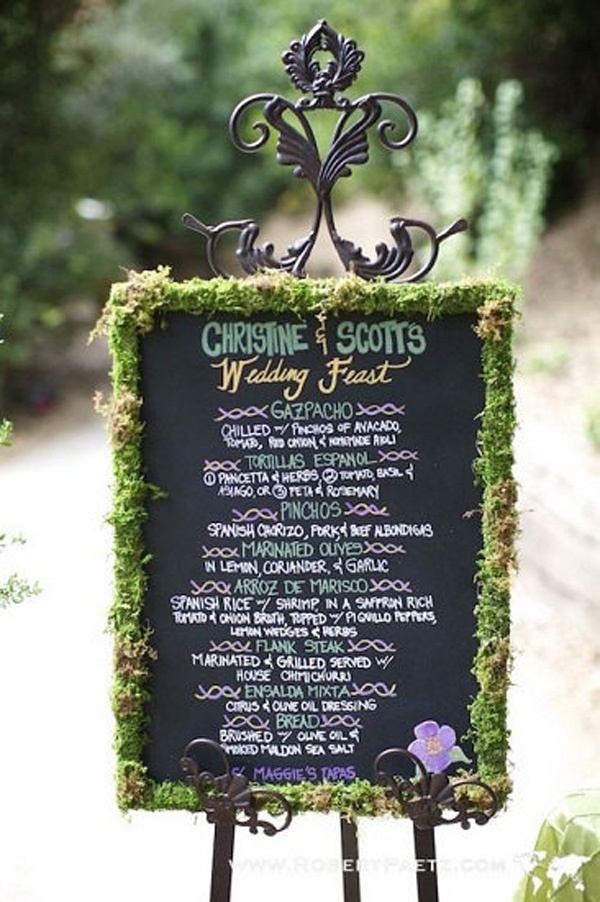 CHRISTINE & SCOTT'S
Wedding Feast
GAZPACHO
CHILLED W/ PINCHOS OF AVACADO,
TOMATO, RED ONION, & HOMEMADE AIOLI
TORTILLAS ESPANOL
① PANCETTA & HERBS, ② TOMATO, BASIL &
ASIAGO, OR ③ FETA & ROSEMARY
PINCHOS
SPANISH CHORIZO, PORK, & BEEF ALBONDIGAS
MARINATED OLIVES
IN LEMON, CORIANDER, & GARLIC
ARROZ DE MARISCO
SPANISH RICE W/ SHRIMP, IN A SAFFRON RICH
TOMATO & ONION BROTH, TOPPED W/ PIQUILLO PEPPERS,
LEMON WEDGES & HERBS
FLANK STEAK
MARINATED & GRILLED, SERVED W/
HOUSE CHMICHURRI
ENSALDA MIXTA
CITRUS & OLIVE OIL DRESSING
BREAD
BRUSHED W/ OLIVE OIL &
SMOKED MALDON SEA SALT
MAGGIE'S TAPAS
WWW.ROBERTFAETZ.COM